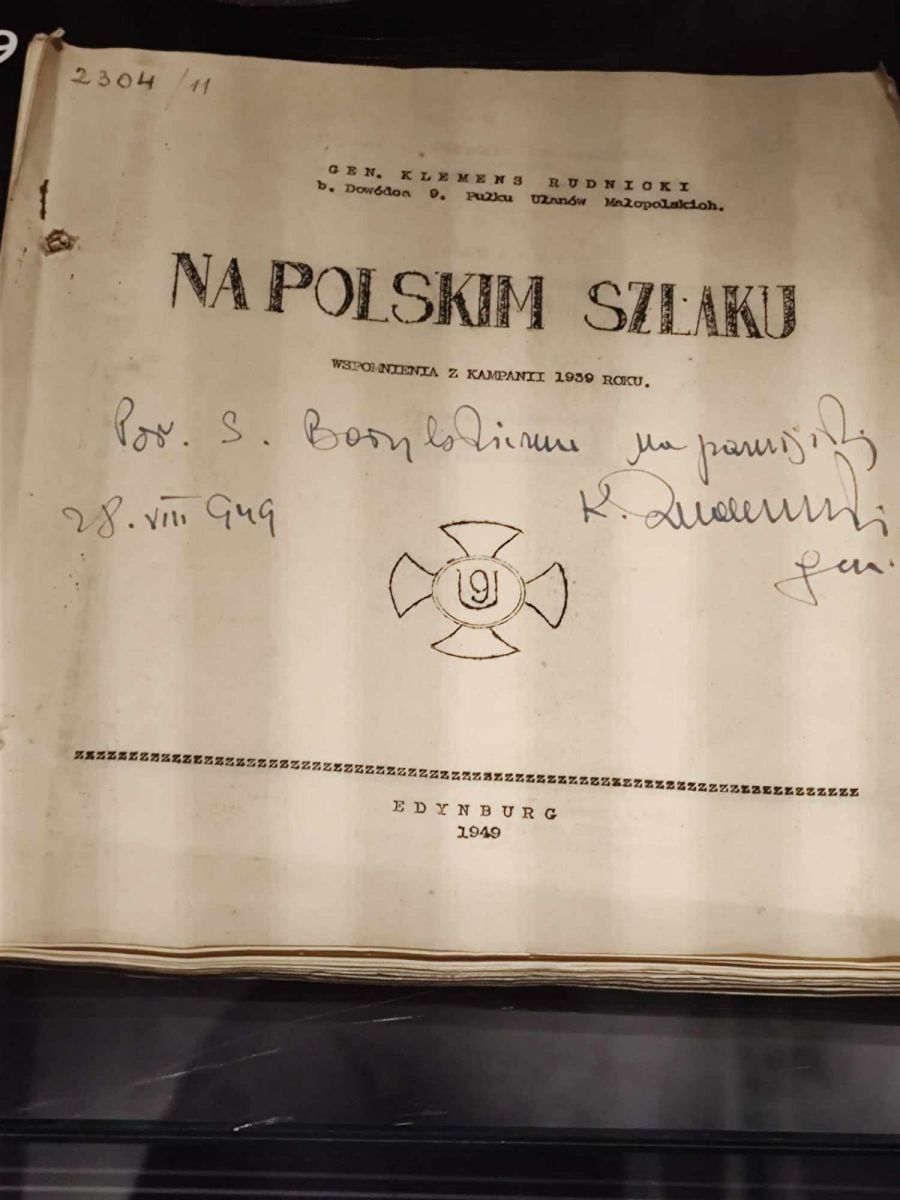 9
2304/11
GEN. KLEMENS RUDNICKI
b. Dowódca 9. Pułku Ułanów Małopolskich.
NA POLSKIM SZLAKU
WSPOMNIENIA Z KAMPANII 1939 ROKU.
Por. S. na pamiątkę
28. VIII 949 K. Rudnicki
gen.
U9
ZZZZZZZZZZZZZZZZZZZZZZZZZZZZZZZZZZZZZZZZZZZZZZZZZZZZZZZZZZZZZZZZZZZZZZ
EDYNBURG
1949